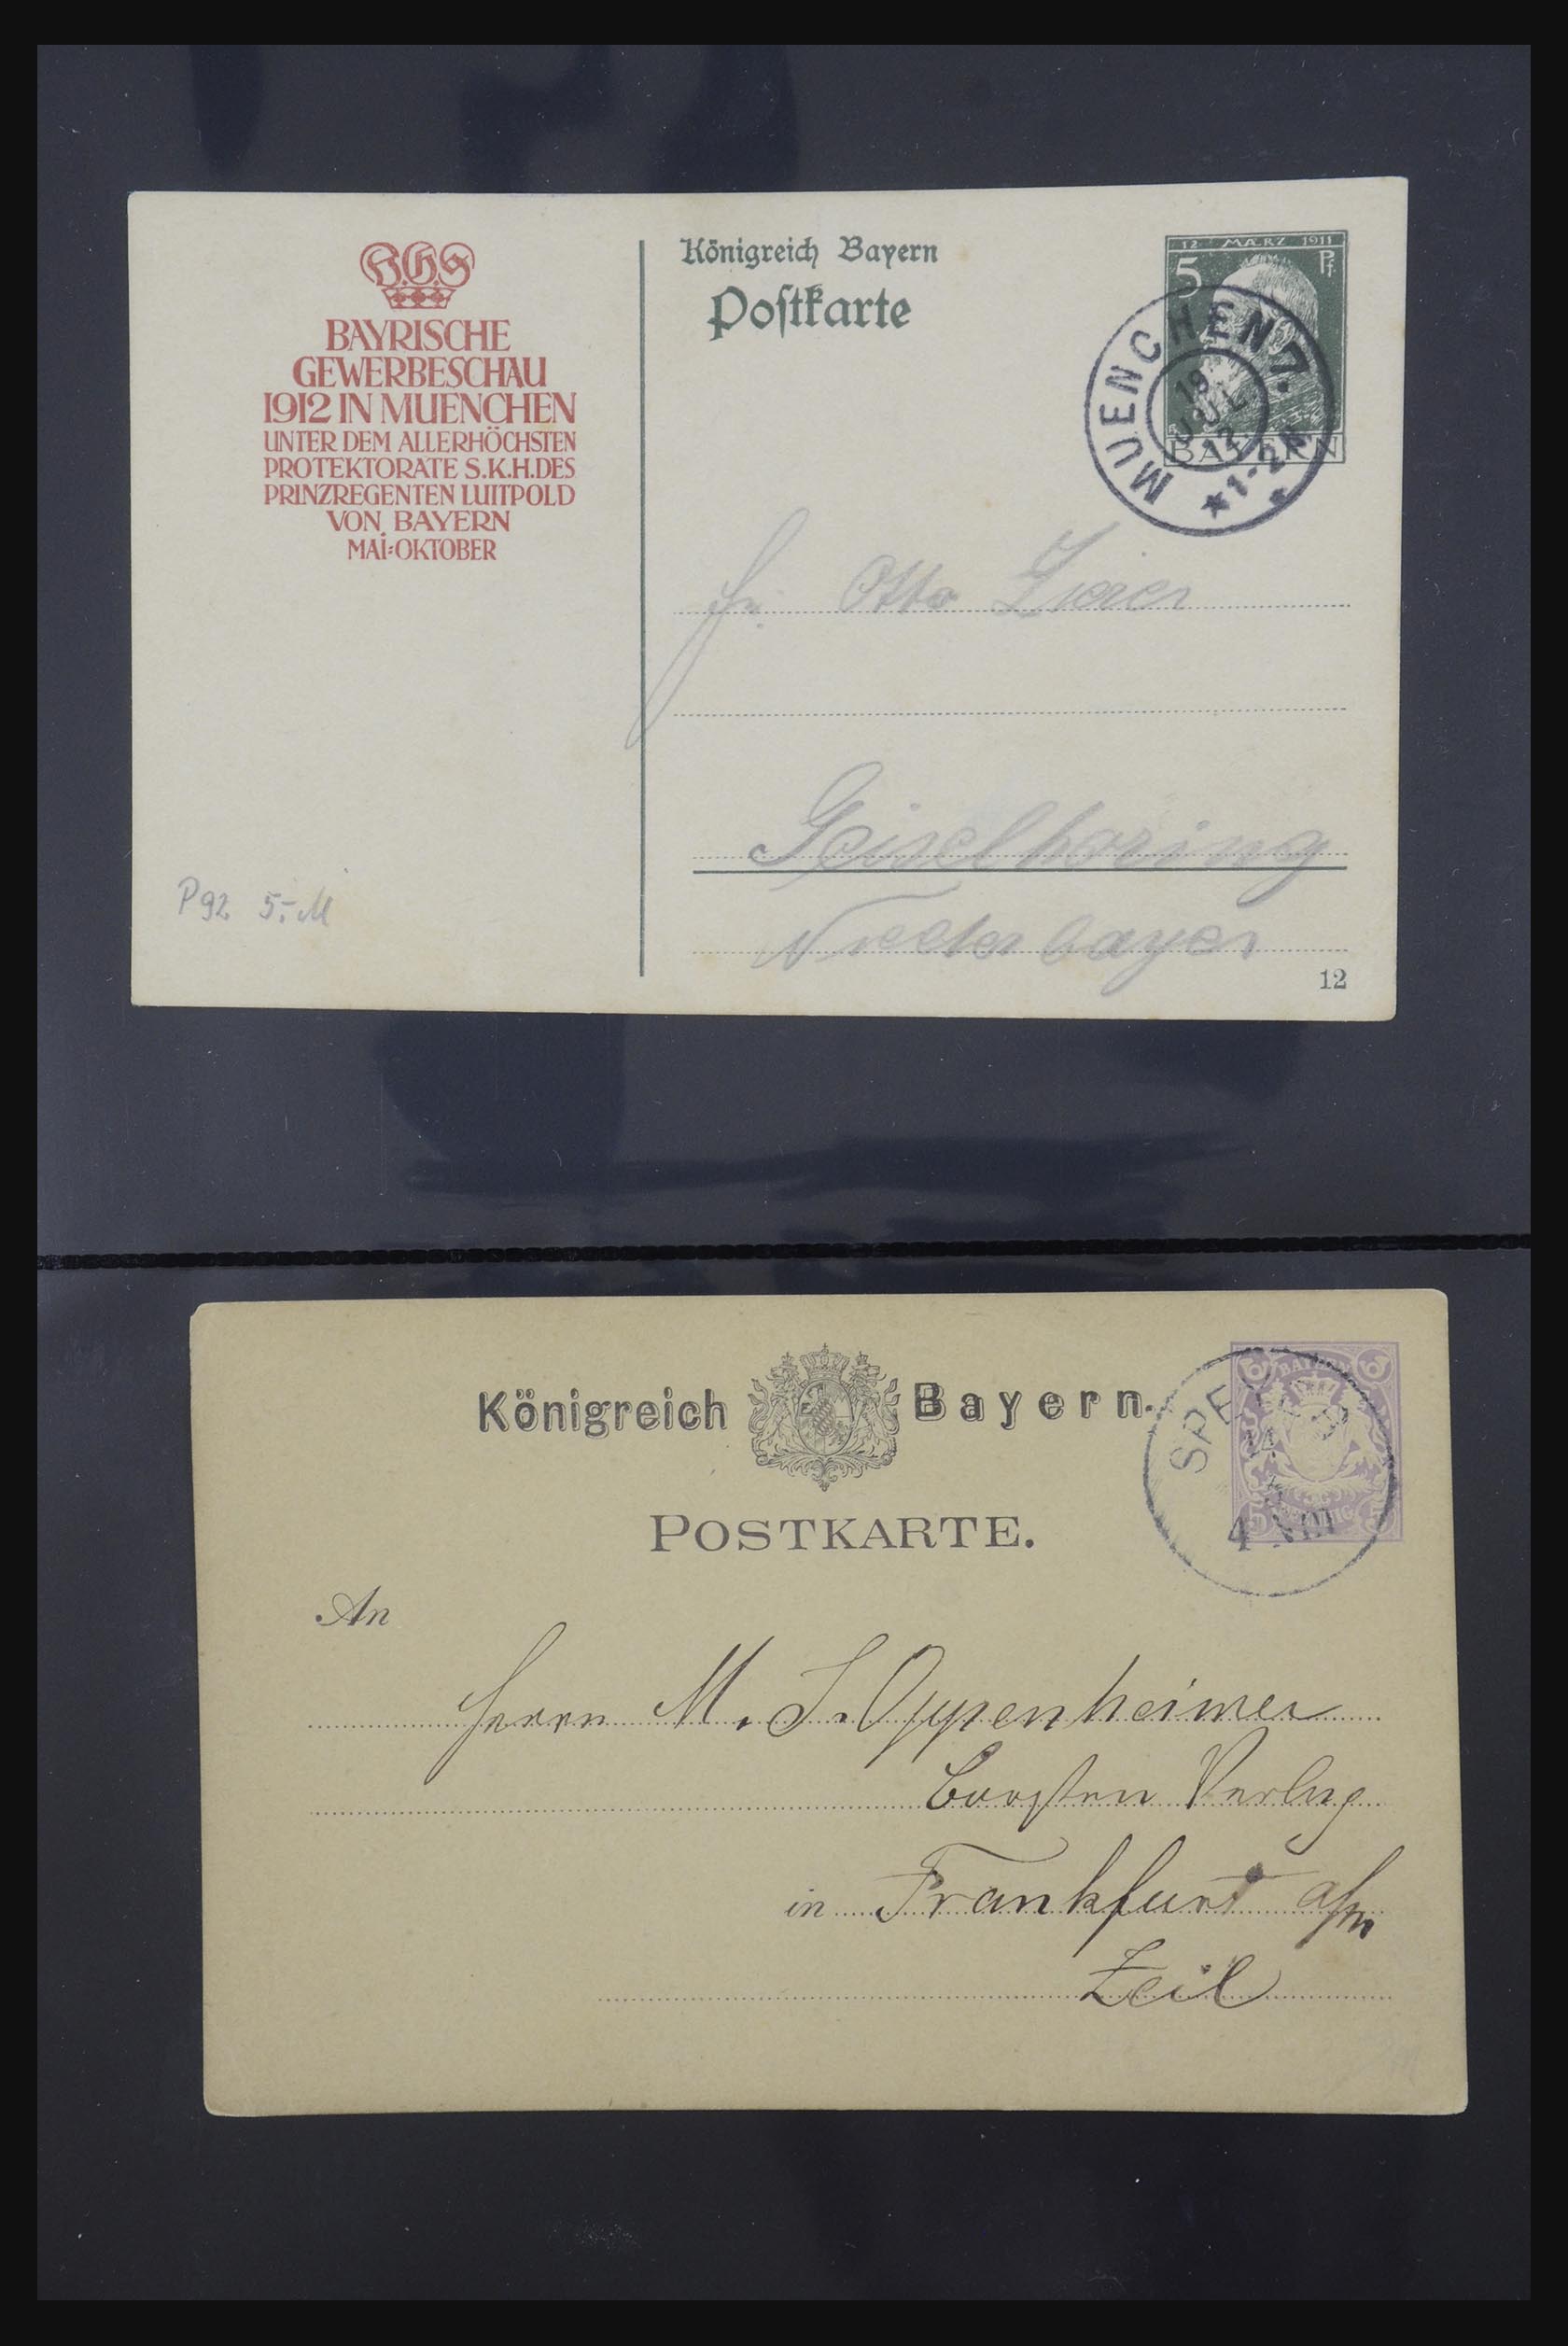 B.G.S
BAYRISCHE
GEWERBESCHAU
1912 IN MUENCHEN
UNTER DEM ALLERHÖCHSTEN
PROTEKTORATE S.K.H.DES
PRINZREGENTEN LUITPOLD
VON BAYERN
MAI-OKTOBER
P92 5,-M
Königreich Bayern
Postkarte
12. MÄRZ 1911
5 Pf
BAYERN
MUENCHEN 7.
19
JUL
12
Otto
Geiselhöring
Niederbayern
12
Königreich Bayern.
POSTKARTE.
BAYERN
5 5
4 VIII
An
Herrn M. J. Oppenheimer
Verlag
in Frankfurt a/m
Zeil